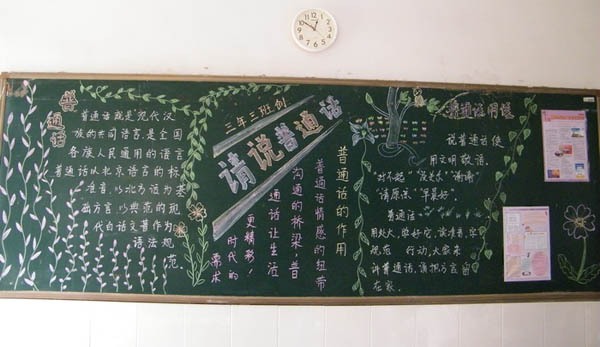 普通话
普通话就是现代汉
族的共同语言,是全国
各族人民通用的语言
普通话以北京语言的标
准音,以北方话为基
础方言,以典范的现
代白话文著作为
语法规
范
三年三班创
请说普通话
普通话的作用
普通话情感的纽带
沟通的桥梁,普
通话让生活
更精彩!
时代的
需求
普通话用途
说普通话使
用文明敬语.
"对不起""没关系""谢谢"
"请原谅""早晨好"
普通话
用处大,学好它,读准音,早
规范 行动,大家来
讲普通话,请把方言留
在家.